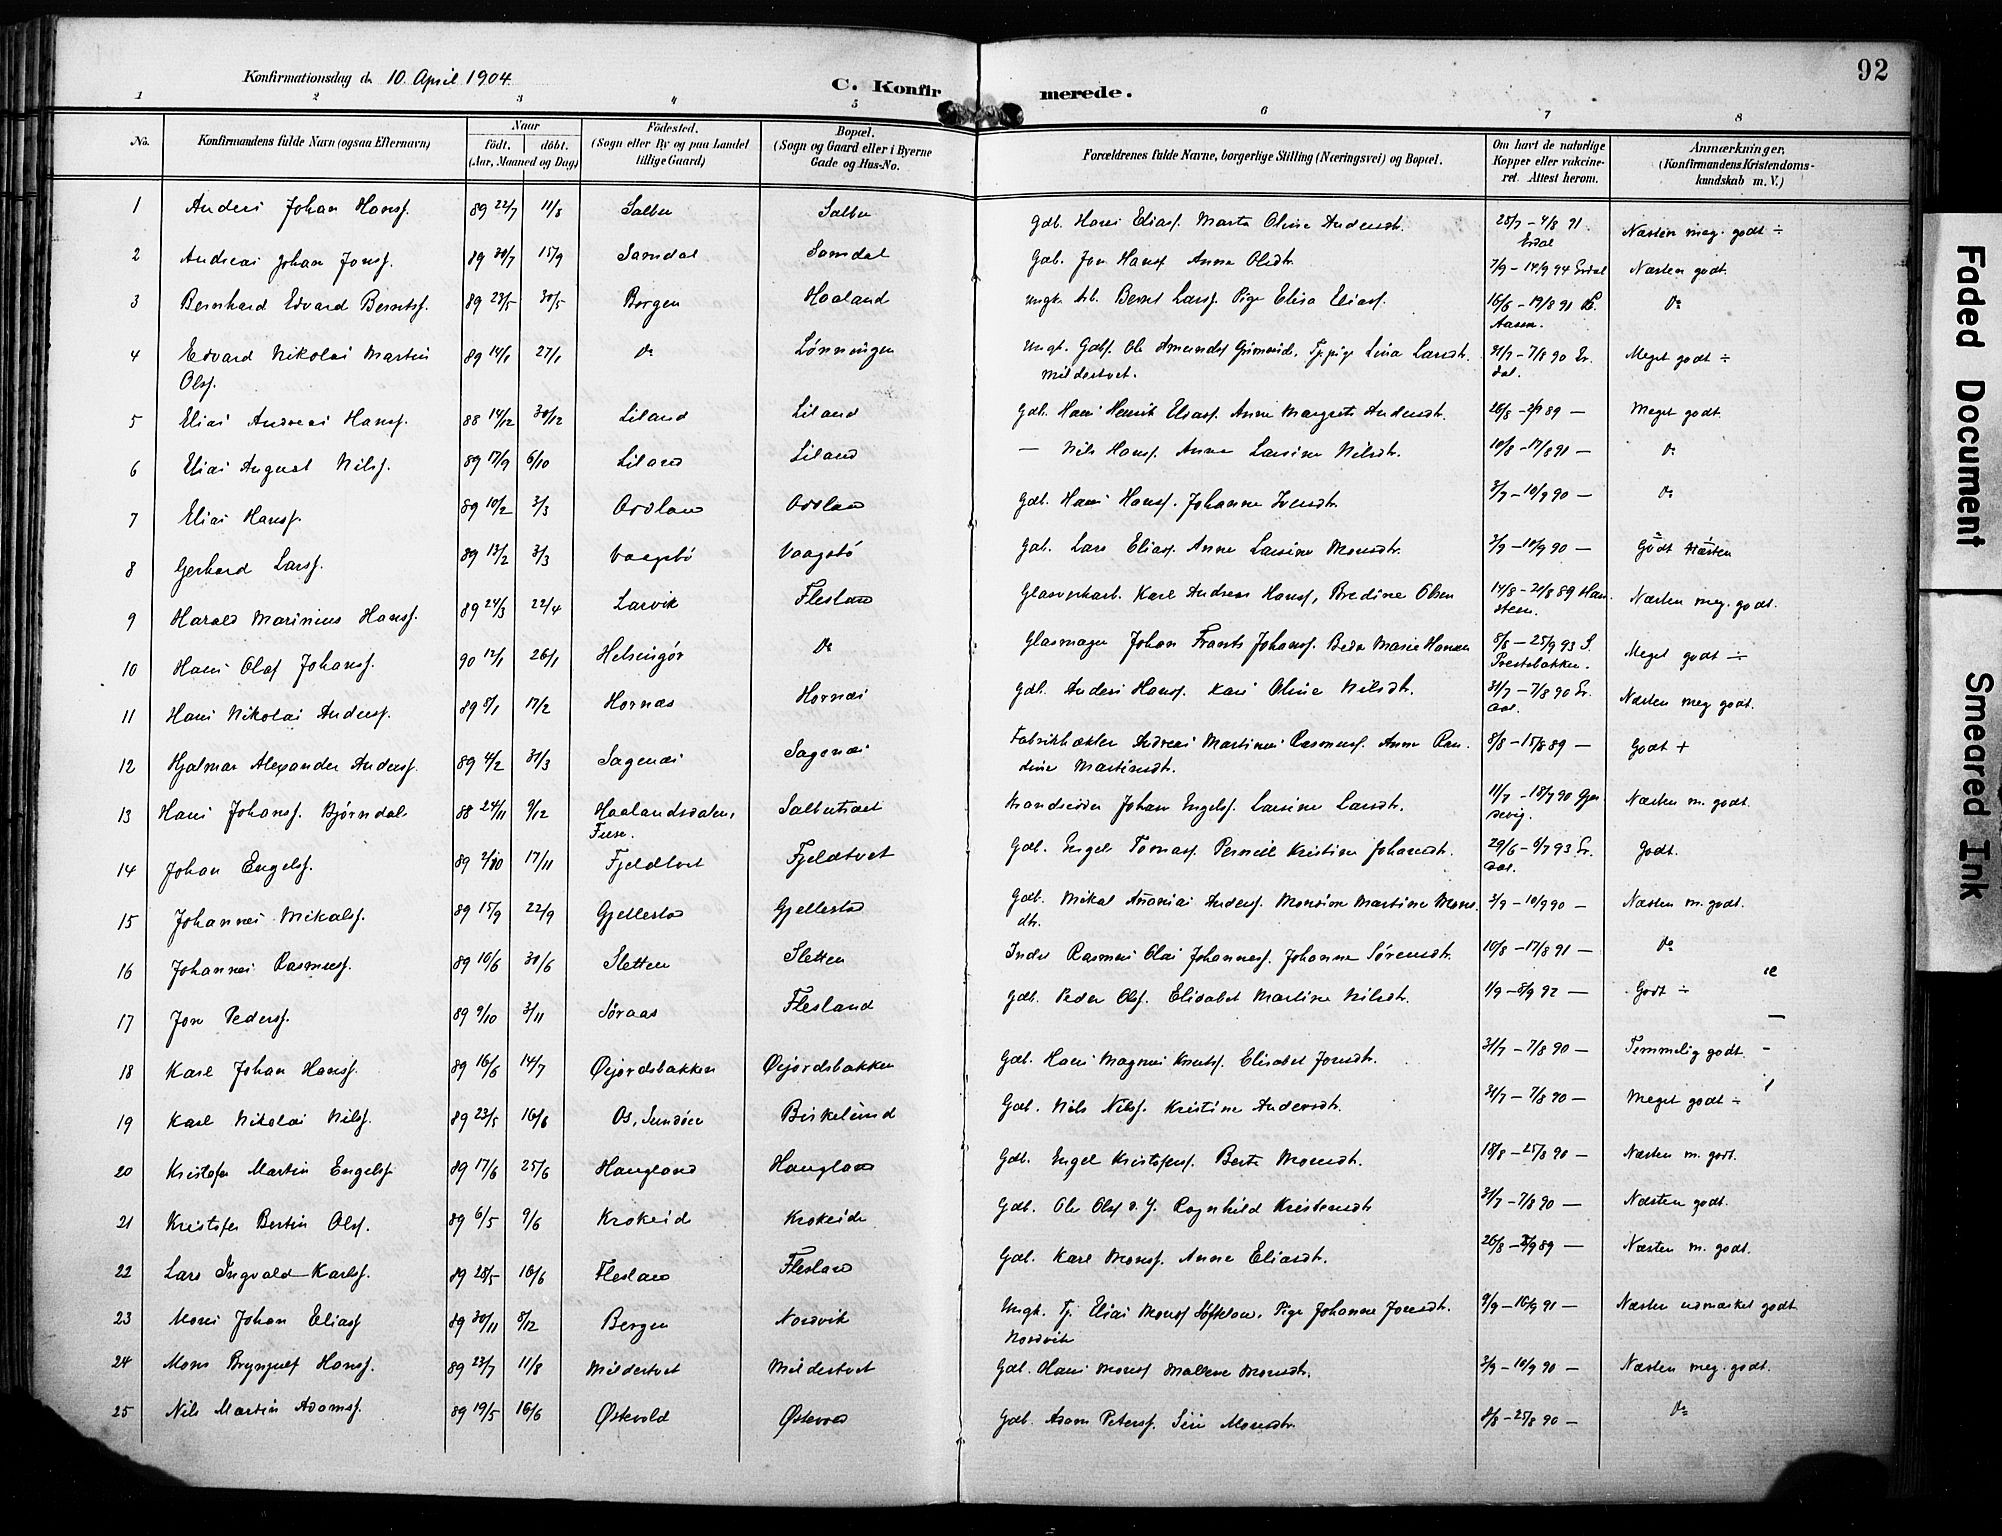 92
Konfirmationsdag d. 10. April 1904.
C. Konfir merede.
1 2 3 4 5 6 7 8
No. Konfirmandens fulde Navn (ogsaa Efternavn) Naar født. døbt. (Aar, Maaned og Dag) Födested. (Sogn eller By og paa Landet tillige Gaard) Bopæl. (Sogn og Gaard eller i Byerne Gade og Hus-No. Forældrenes fulde Navne, borgerlige Stilling (Næringsvei) og Bopæl. Om havt de naturlige Kopper eller vakcineret. Attest herom. Anmærkninger, (Konfirmandens Kristendomskundskab m. V.)
1 Anders Johan Hansf. 89 22/7 11/8 Salbu Salbu Gdb. Hans Eliasf. Marta Oline Andersdtr. 28/7 – 4/8 91. Erdal Næsten meg. godt ÷
2 Andreas Johan Jonsf. 89 30/7 15/9 Samdal Samdal Gdb. Jon Hansf. Anna Olsdtr. 7/9 – 14/9 94 Erdal Næsten godt.
3 Bernhard Edvard Berntsf. 89 23/5 30/5 Bergen Haaland Ungk. Arb. Bernt Larsf. Pige Elisa Eliasf. 16/6 – 19/8 91 Aasen. Do
4 Edvard Nikolai Martin Olsf. 89 14/1 27/1 Do Lønningen Ungk. Gdbf. Ole Amundsf Grimseid. Tj.pige Lina Larsdtr. Mildestvet. 31/7 – 7/8 90 Erdal. Meget godt ÷
5 Elias Andreas Hansf. 88 14/12 30/12 Liland Liland Gdb. Hans Henrik Eliasf. Anna Margrete Andersdtr. 26/8 – 2/9 89 – Meget godt.
6 Elias August Nilsf. 89 17/9 6/10 Liland Liland — Nils Hansf. Anna Larsine Nilsdtr. 10/8 – 17/8 91 – Do
7 Elias Hansf. 89 10/2 3/3 Ordland Ordland Gdb. Hans Hansf. Johanne Iversdtr. 3/9 – 10/9 90 – Do
8 Gerhard Larsf. 89 13/2 3/3 Vaagsbø Vaagsbø Gdb. Lars Eliasf. Anna Larsine Monsdtr. 3/9 – 10/9 90 – Godt Næsten
9 Harald Marinius Hansf. 89 24/3 22/4 Larvik Flesland Glasverkarb. Karl Andreas Hansf, Bredine Olsen 14/8 – 21/8 89 Hansteen. Næsten meg. godt.
10 Hans Olaf Johansf. 90 12/1 26/1 Helsingør Do Glasmager Johan Frants Johansf. Beda Marie Hansen 8/8 – 25/9 93 S. Prestebakke. Meget godt ÷
11 Hans Nikolai Andersf. 89 8/1 17/2 Hornæs Hornæs Gdb. Anders Hansf. Kari Oline Nilsdtr. 31/7 – 7/8 90 Erdal. Næsten meg godt.
12 Hjalmar Alexander Andersf. 89 4/2 31/3 Sagenæs Sagenæs Andreas Martinus Rasmusf. Anna Randine Martinsdtr. 8/8 – 15/8 89 – Godt +
13 Hans Johansf. Bjørndal 88 24/11 9/12 Haalandsdalen, Fuse. Salbutræt Strandsidder Johan Engelsf. Larsine Larsdtr. 11/7 – 18/7 90 Næsten m. godt.
14 Johan Engelsf. 89 2/10 17/11 Fjeldtvet Fjeldtvet Gdb. Engel Tomasf. Pernill Kristine Johansdtr. 29/6 – 6/7 93 Erdal. Godt.
15 Johannes Mikalsf. 89 15/9 22/9 Gjellestad Gjellestad Gdb. Mikal Ananias Andersf. Monsine Martine Monsdtr. 3/9 – 10/9 90 – Næsten m. godt.
16 Johannes Rasmusf. 89 10/6 30/6 Sletten Sletten Inder. Rasmus Olai Johannesf. Johanne Sørensdtr. 10/8 – 17/8 91 – Do
17 Jon Pedersf. 89 9/10 3/11 Søraas Flesland Gdb. Peder Olsf. Elisabet Martine Nilsdtr. 1/9 – 8/9 92 – Godt ÷
18 Karl Johan Hansf. 89 16/6 14/7 Øvjordsbakken Øvjordsbakken Gdb. Hans Magnus Knutsf. Elisabet Jonsdtr. 31/7 – 7/8 90 – Temmelig godt.
19 Karl Nikolai Nilsf. 89 23/5 16/6 Os, Sundøen Birkelund Gdb. Nils Nilsf. Kristine Andersdtr. 31/7 – 7/8 90 – Meget godt ÷
20 Kristofer Martin Engelsf 89 17/6 25/6 Haugland Haugland Gdb. Engel Kristofersf. Berta Monsdtr. 18/8 – 25/8 90 – Næsten m. godt.
21 Kristofer Bertin Olsf. 89 6/5 9/6 Krokeide Krokeide Gdb. Ole Olsf d. Y. Ragnhild Kristensdtr. 31/7 – 7/8 90 – Næsten godt.
22 Lars Ingvald Karlsf. 89 28/5 16/6 Flesland Flesland Gdb. Karl Monsf. Anna Eliasdtr. 26/8 – 2/9 89 – Næsten m. godt.
23 Mons Johan Eliasf 89 30/11 8/12 Bergen Nordvik Ungk. Tj. Elias Monsf Pige Johanne Jonsdtr. Nordvik 9/9 – 16/9 91 – Næsten udmærket godt
24 Mons Brynjulf Hansf. 89 23/7 11/8 Mildestvet Mildestvet Gdb. Hans Monsf Malene Monsdtr. 3/9 – 10/9 90 – Næsten meg. godt.
25 Nils Martin Adamsf. 89 19/5 16/6 Østevold Østevold Gdb. Adam Petersf. Siri Monsdtr. – 25/8 90 – Do
Faded Document
Smeared Ink